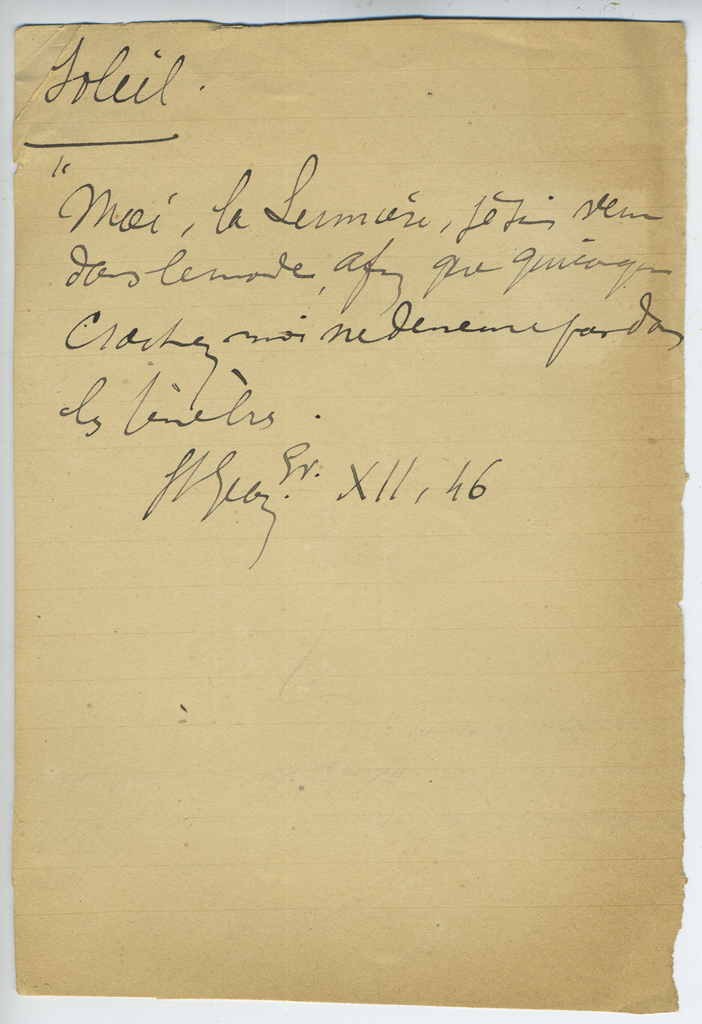 Soleil.
"Moi, la Lumière, je suis venu
dans le monde, afin que quiconque
croit en moi ne demeure pas dans
les ténèbres.
St Jean Ev. XII, 46